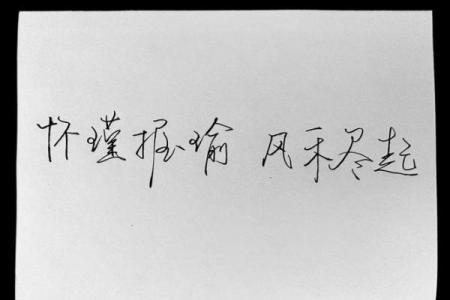 怀瑾握瑜 风禾尽起